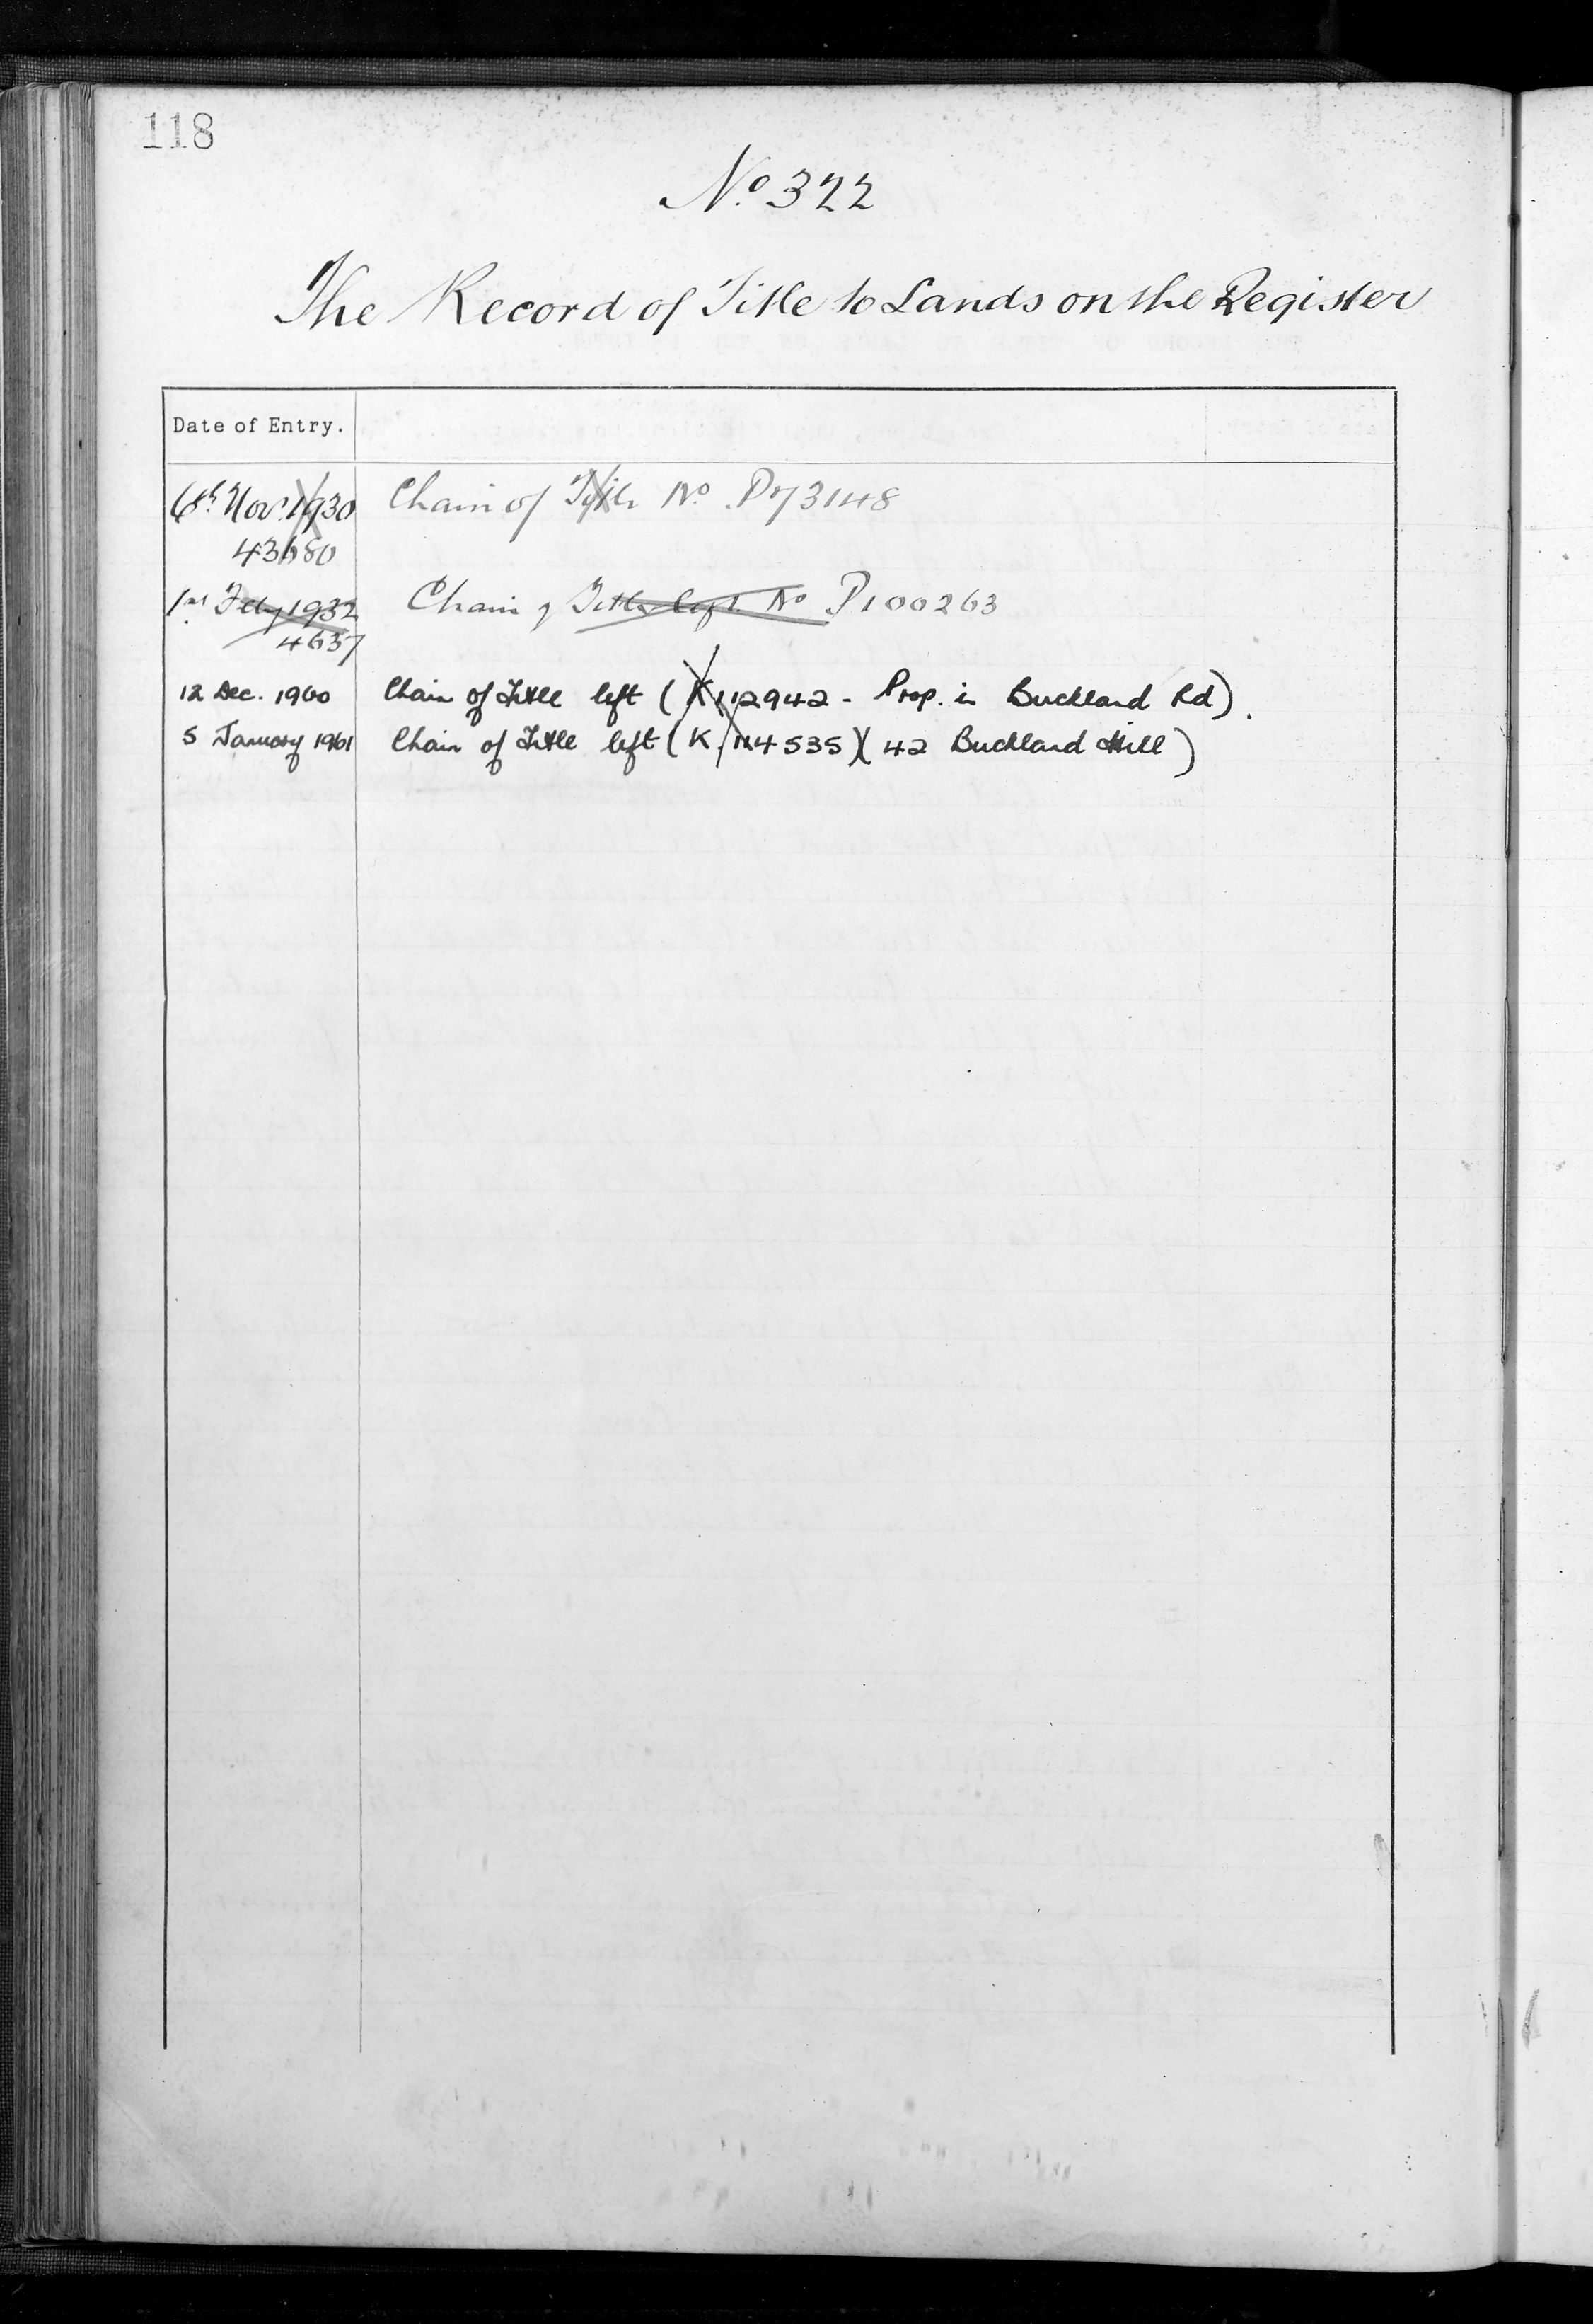 118
No. 322
The Record of Title to Lands on the Register
Date of Entry.
6th Nov. 1930 Chain of Title No. P73148
43680
1st Feby 1932 Chain of Title left No P100263
4637
12 Dec. 1960 Chain of Title left (K112942 - Prop. in Buckland Rd).
5 January 1961 Chain of Title left (K.114535)(42 Buckland Hill)